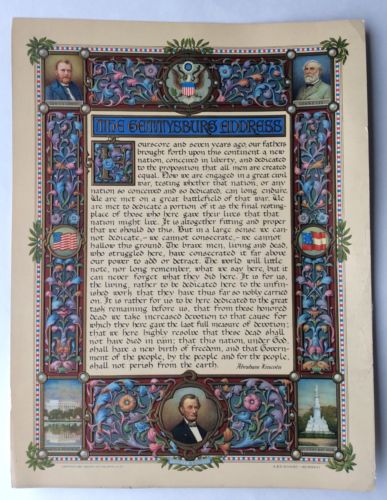 THE GETTYSBURG ADDRESS
Fourscore and seven years ago, our fathers
brought forth upon this continent a new
nation, conceived in liberty, and dedicated
to the proposition that all men are created
equal. Now we are engaged in a great civil
war, testing whether that nation, or any
nation so conceived and so dedicated, can long endure.
We are met on a great battlefield of that war. We
are met to dedicate a portion of it as the final resting-
place of those who here gave their lives that that
nation might live. It is altogether fitting and proper
that we should do this. But in a large sense we can-
not dedicate,- we cannot consecrate,- we cannot
hallow this ground. The brave men, living and dead,
who struggled here, have consecrated it far above
our power to add or detract. The world will little
note, nor long remember, what we say here, but it
can never forget what they did here. It is for us,
the living, rather to be dedicated here to the unfin-
ished work that they have thus far so nobly carried
on. It is rather for us to be here dedicated to the great
task remaining before us, that from these honored
dead we take increased devotion to that cause for
which they here gave the last full measure of devotion;
that we here highly resolve that these dead shall
not have died in vain; that this nation, under God,
shall have a new birth of freedom, and that Govern-
ment of the people, by the people and for the people,
shall not perish from the earth.
Abraham Lincoln